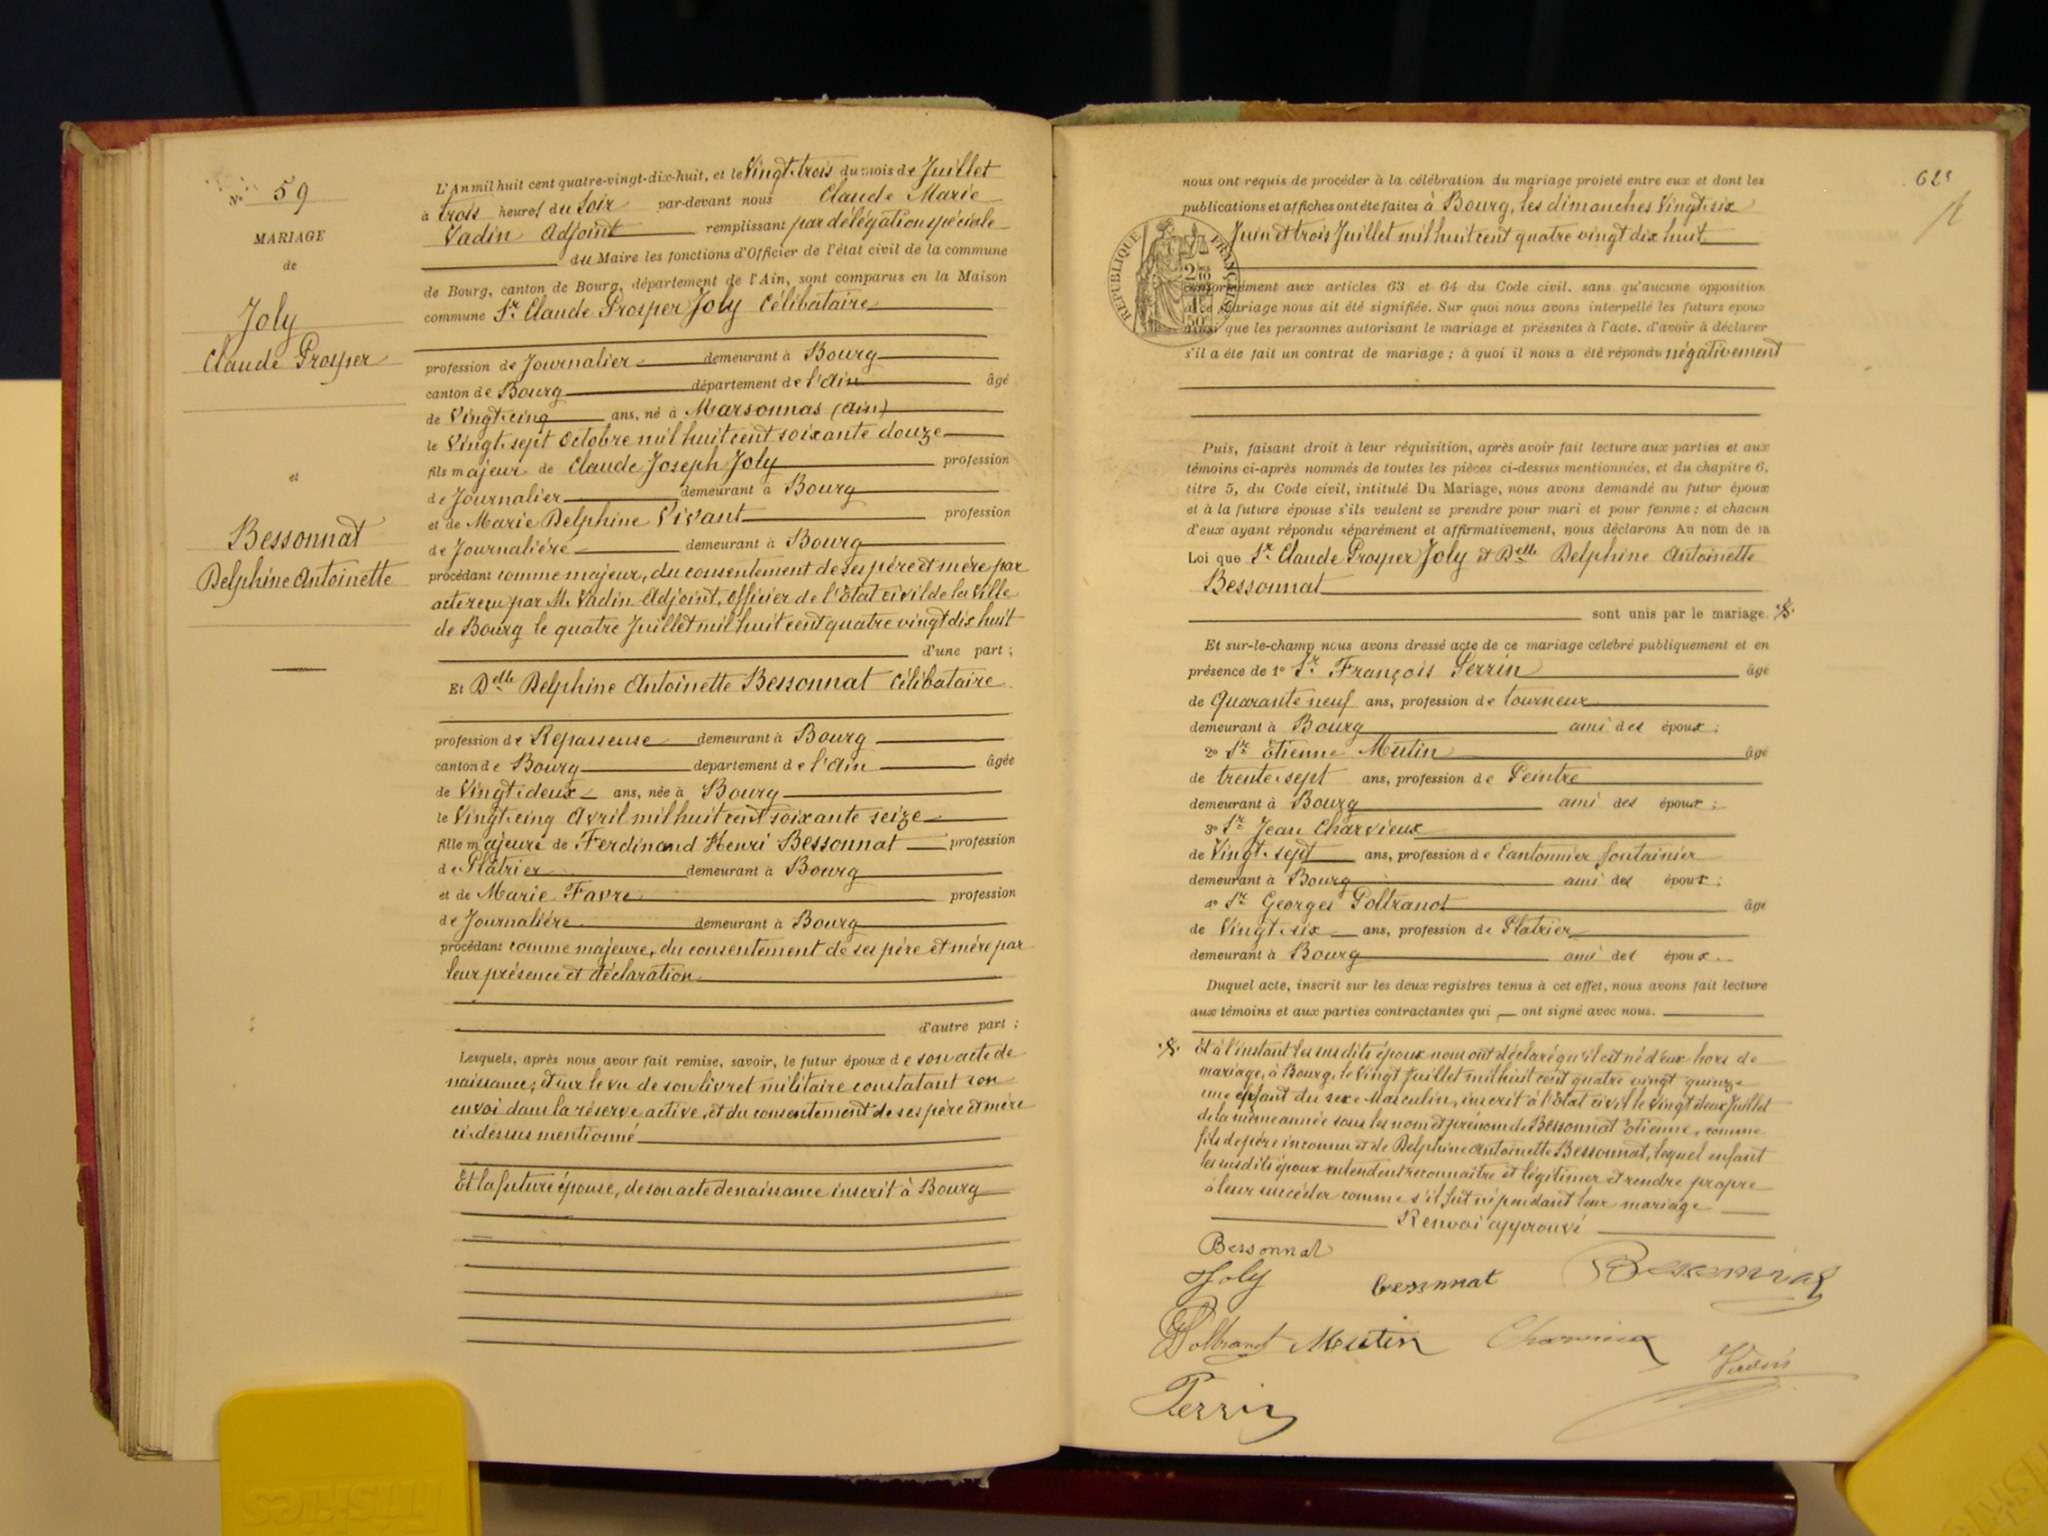 N° 59
MARIAGE
de
Joly
Claude Prosper
et
Bessonnat
Delphine Antoinette
L'An mil huit cent quatre-vingt-dix-huit, et le Vingt-trois du mois de Juillet
à trois heures du Soir par-devant nous Claude Marie
Vadin Adjoint remplissant par délégation spéciale
du Maire les fonctions d'Officier de l'état civil de la commune
de Bourg, canton de Bourg, département de l'Ain, sont comparus en la Maison
commune Sr Claude Prosper Joly Célibataire
profession de Journalier demeurant à Bourg
canton de Bourg département de l'Ain âgé
de Vingt-cinq ans, né à Marsonnas (Ain)
le Vingt-sept Octobre mil huit cent soixante douze
fils majeur de Claude Joseph Joly profession
de Journalier demeurant à Bourg
et de Marie Delphine Vivant profession
de Journalière demeurant à Bourg
procédant comme majeur, du consentement de ses père et mère par
acte reçu par M. Vadin Adjoint, Officier de l'Etat civil de la Ville
de Bourg le quatre Juillet mil huit cent quatre vingt dix huit
d'une part ;
Et Delle Delphine Antoinette Bessonnat Célibataire
profession de Repasseuse demeurant à Bourg
canton de Bourg département de l'Ain âgée
de Vingt-deux ans, née à Bourg
le Vingt-cinq Avril mil huit cent soixante seize
fille majeure de Ferdinand Henri Bessonnat profession
de Plâtrier demeurant à Bourg
et de Marie Favre profession
de Journalière demeurant à Bourg
procédant comme majeure, du consentement de ses père et mère par
leur présence et déclaration
d'autre part ;
Lesquels, après nous avoir fait remise, savoir, le futur époux de son acte de
naissance, et sur le vu de son livret militaire constatant son
envoi dans la réserve active, et du consentement de ses père et mère
ci-dessus mentionné
Et la future épouse, de son acte de naissance inscrit à Bourg
62
nous ont requis de procéder à la célébration du mariage projeté entre eux et dont les
publications et affiches ont été faites à Bourg, les dimanches Vingt-six
Juin et trois Juillet mil huit cent quatre vingt dix huit
RÉPUBLIQUE FRANÇAISE
conformément aux articles 63 et 64 du Code civil. sans qu'aucune opposition
à ce mariage nous ait été signifiée. Sur quoi nous avons interpellé les futurs époux
ainsi que les personnes autorisant le mariage et présentes à l'acte. d'avoir à déclarer
s'il a été fait un contrat de mariage ; à quoi il nous a été répondu négativement
Puis, faisant droit à leur réquisition, après avoir fait lecture aux parties et aux
témoins ci-après nommés de toutes les pièces ci-dessus mentionnées, et du chapitre 6,
titre 5, du Code civil, intitulé Du Mariage, nous avons demandé au futur époux
et à la future épouse s'ils veulent se prendre pour mari et pour femme ; et chacun
d'eux ayant répondu séparément et affirmativement, nous déclarons Au nom de la
Loi que Sr Claude Prosper Joly et Delle Delphine Antoinette
Bessonnat
sont unis par le mariage.
Et sur-le-champ nous avons dressé acte de ce mariage célébré publiquement et en
présence de 1° Sr François Perrin âgé
de Quarante neuf ans, profession de tourneur
demeurant à Bourg ami des époux ;
2° Sr Etienne Mutin âgé
de trente-sept ans, profession de Peintre
demeurant à Bourg ami des époux ;
3° Sr Jean Charvieux
de Vingt-sept ans, profession de Cantonnier fontainier
demeurant à Bourg ami des époux ;
4° Sr Georges Poltranot âgé
de Vingt-six ans, profession de Platrier
demeurant à Bourg ami des époux.
Duquel acte, inscrit sur les deux registres tenus à cet effet, nous avons fait lecture
aux témoins et aux parties contractantes qui ont signé avec nous.
Et à l'instant les susdits époux nous ont déclaré qu'il est né d'eux hors de
mariage, à Bourg, le Vingt Juillet mil huit cent quatre vingt quinze
une enfant du sexe Masculin, inscrit à l'Etat civil le Vingt deux Juillet
de la même année sous les nom et prénom de Bessonnat Etienne, comme
fils de père inconnu et de Delphine Antoinette Bessonnat, lequel enfant
les susdits époux entendent reconnaître et légitimer et rendre propre
à leur succéder comme s'il fut né pendant leur mariage
Renvoi approuvé
Bessonnat
Joly bessonnat Bessonnat
Poltranot Mutin Charvieux
Vadin
Perrin